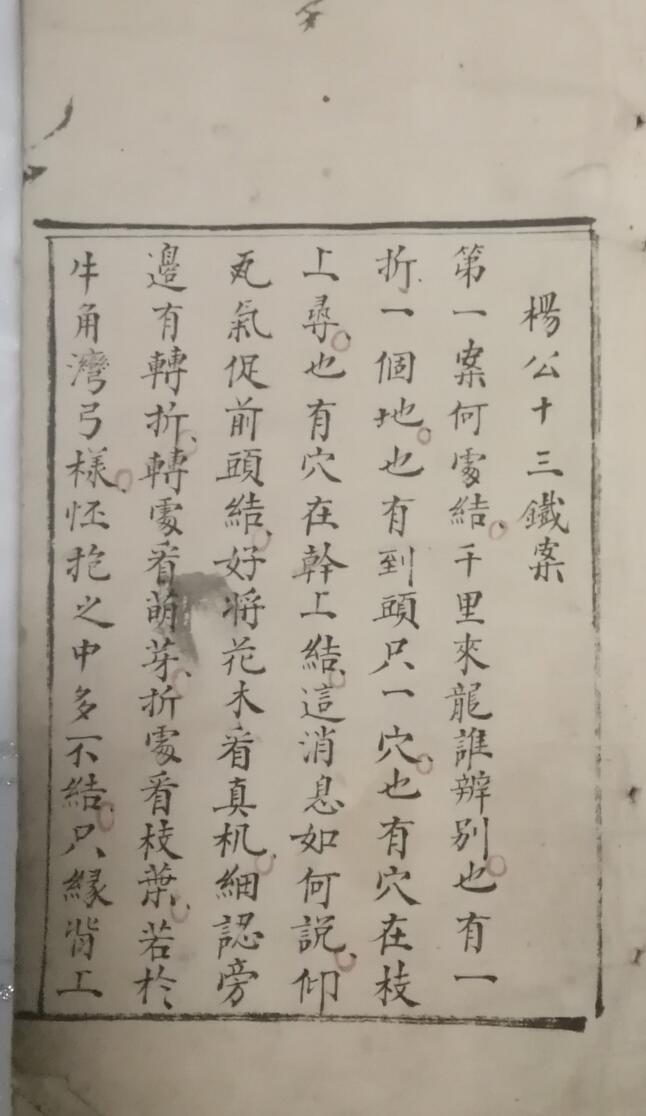 楊公十三鐵案
第一案何處結、千里來龍誰辨別。也有一
折一個地。也有到頭只一穴。也有穴在枝
上尋。也有穴在幹上結。這消息如何說。仰
瓦氣促前頭結。好將花木看真机。細認旁
邊有轉折、轉處看萌芽、折處看枝葉。若於
牛角灣弓樣。怌抱之中多不結。只緣背上